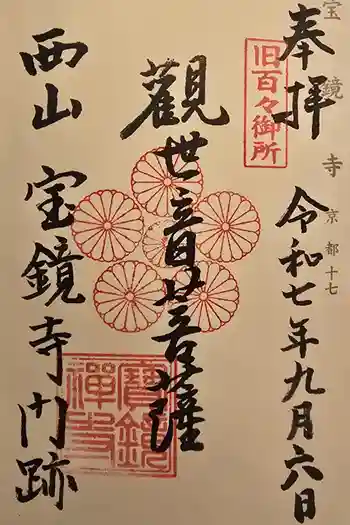 宝鏡寺 京都十七
奉拝 令和七年九月六日
旧百々御所
觀世音菩薩
西山 宝鏡寺門跡
寶鏡
禅寺